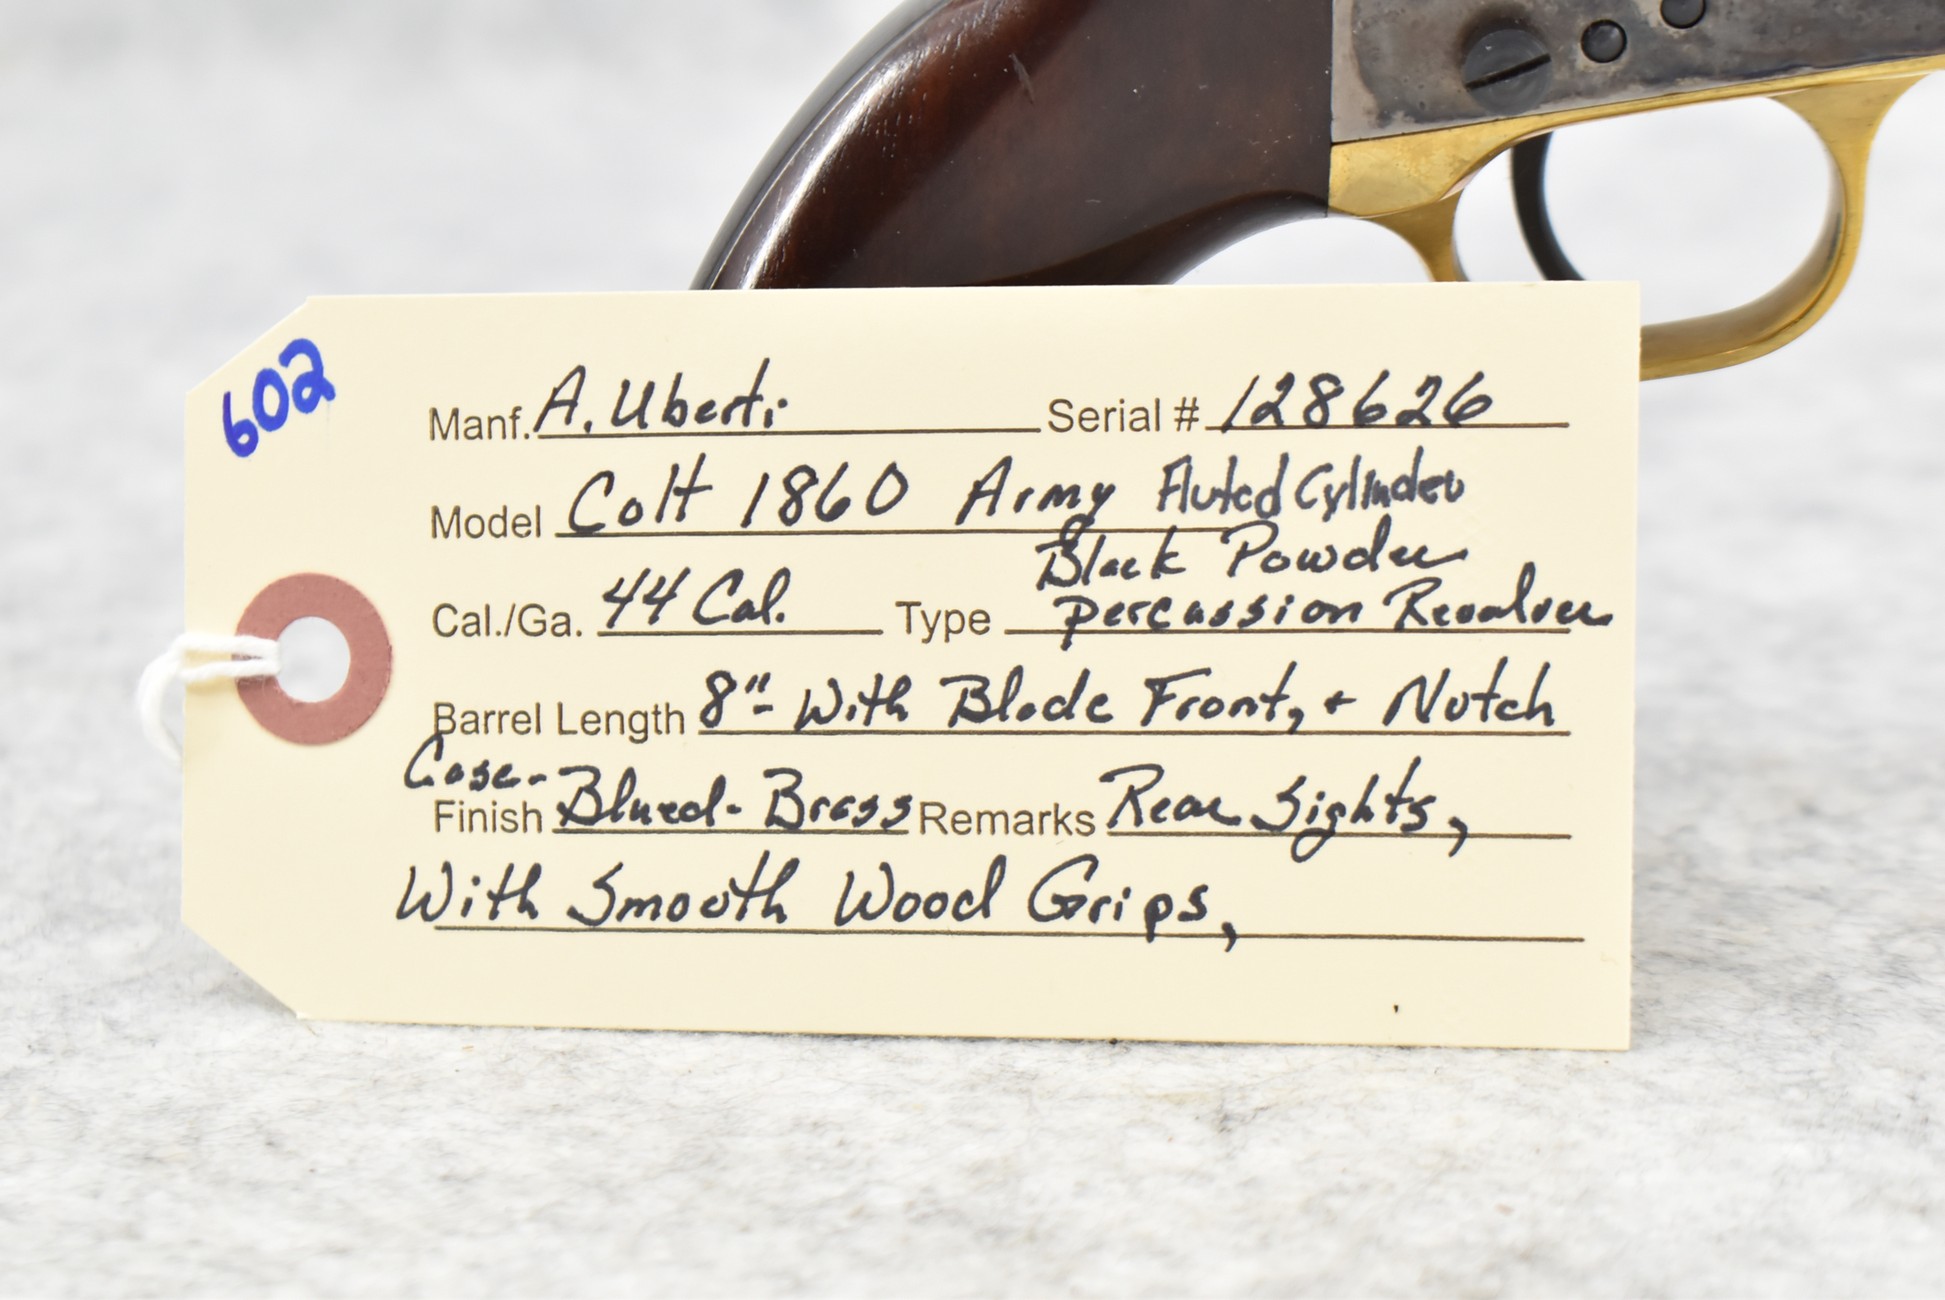 602
Manf. A. Uberti Serial # 128626
Model Colt 1860 Army Fluted Cylinder
Black Powder
Cal./Ga. 44 Cal. Type Percussion Revolver
Barrel Length 8"- With Blade Front, + Notch
Case-
Finish Blued- Brass Remarks Rear Sights,
With Smooth Wood Grips,